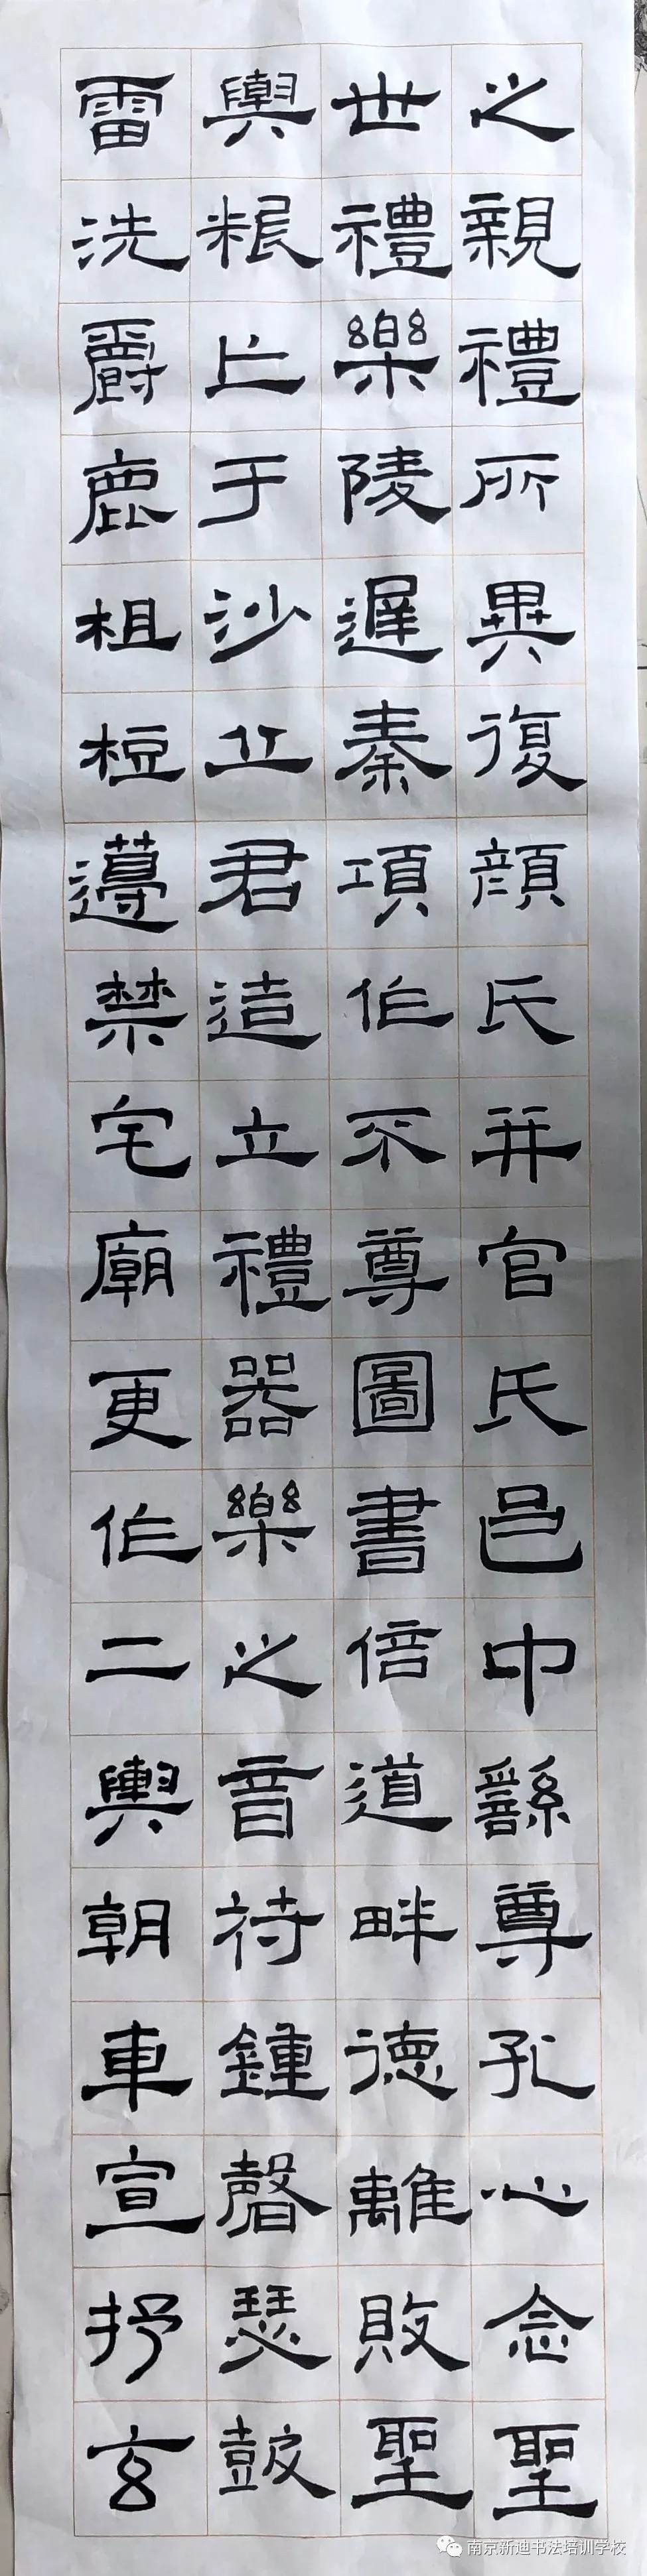 之親禮所異復顏氏并官氏邑中繇尊孔心念聖
世禮樂陵遲秦項作不尊圖書倍道畔德離敗聖
輿粮亡于沙丘君造立禮器樂之音符鍾磬瑟鼓
雷洗爵鹿柤梪籩禁宅廟更作二輿朝車宣抒玄
南京新迪书法培训学校